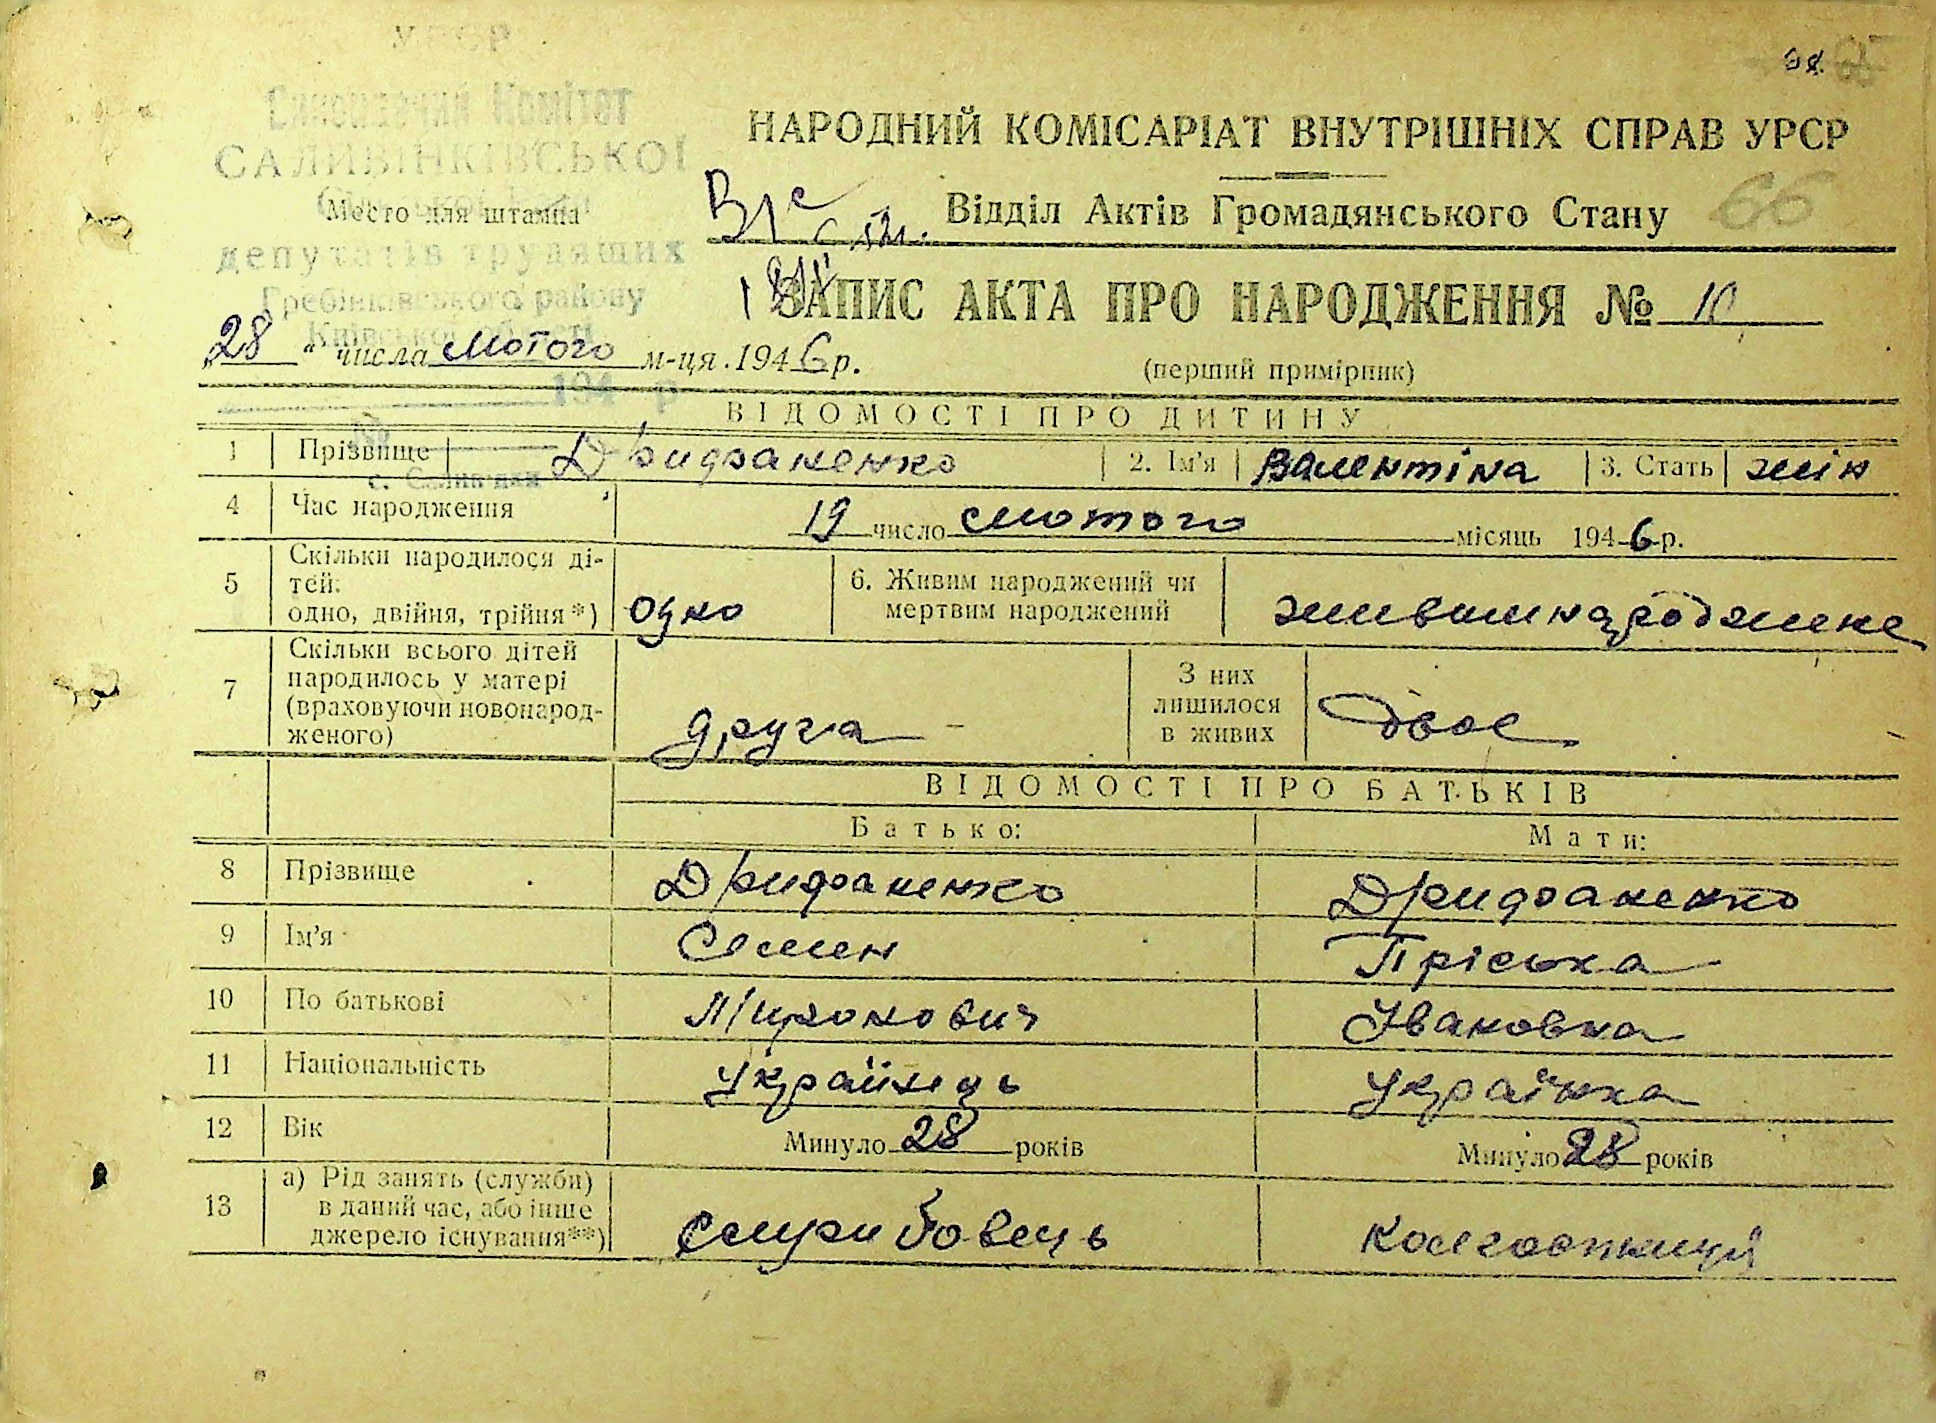 УРСР
Виконавчий Комітет
САЛИВІНКІВСЬКОЇ
Место для штампа
депутатів трудящих
Гребінківського району
Київської області
194 р.
с. Саливінки
66
НАРОДНИЙ КОМІСАРІАТ ВНУТРІШНІХ СПРАВ УРСР
Відділ Актів Громадянського Стану
ЗАПИС АКТА ПРО НАРОДЖЕННЯ № 10
„28“ числа лютого м-ця 1946 р.
(перший примірник)
ВІДОМОСТІ ПРО ДИТИНУ
1 Прізвище Дрифаненко 2. Ім'я Валентіна 3. Стать жін
4 Час народження 19 число лютого місяць 1946 р.
5 Скільки народилося ді-
тей:
одно, двійня, трійня*) одно
6. Живим народжений чи
мертвим народжений живим народжене
7 Скільки всього дітей
народилось у матері
(враховуючи новонарод-
женого) друга
З них
лишилося
в живих двоє
ВІДОМОСТІ ПРО БАТЬКІВ
Батько: Мати:
8 Прізвище Дрифаненко Дрифаненко
9 Ім'я Семен Пріська
10 По батькові Миронович Івановна
11 Національність Українець Українка
12 Вік Минуло 28 років Минуло 28 років
13 а) Рід занять (служби)
в даний час, або інше
джерело існування**) колгоспниця